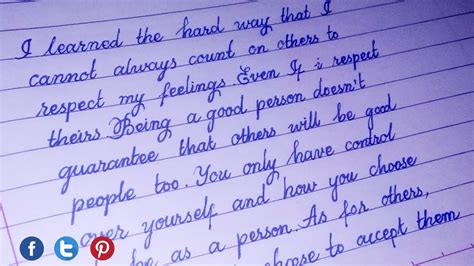 I learned the hard way that I
cannot always count on others to
respect my feelings. Even If i respect
theirs. Being a good person doesn't
guarantee that others will be good
people too. You only have control
over yourself and how you choose
as a person. As for others,
to accept them